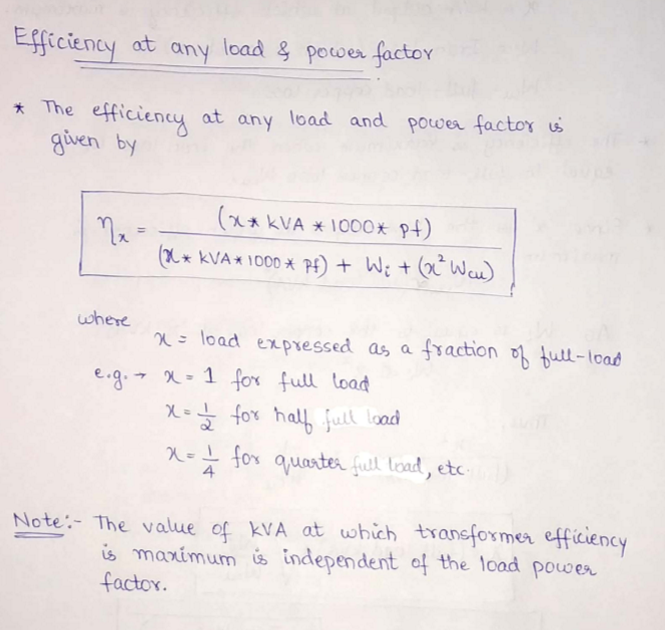 Efficiency at any load & power factor
* The efficiency at any load and power factor is
given by
ηx = (x * kVA * 1000 * pf) / (x * kVA * 1000 * pf) + Wi + (x² Wcu)
where
x = load expressed as a fraction of full-load
e.g. → x = 1 for full load
x = 1/2 for half full load
x = 1/4 for quarter full load, etc.
Note:- The value of kVA at which transformer efficiency
is maximum is independent of the load power
factor.